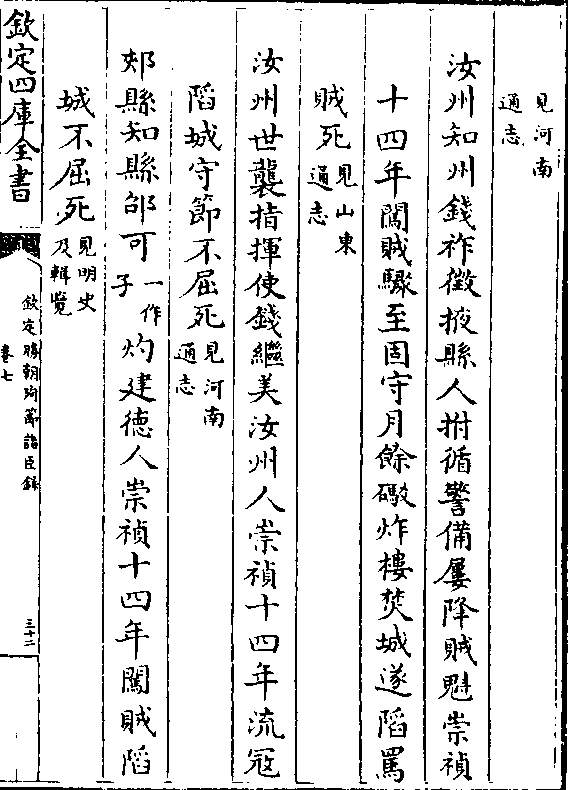 見河南
通志
汝州知州錢祚徵掖縣人拊循警備屢降賊魁崇禎
十四年闖賊驟至固守月餘礮炸樓焚城遂䧟罵
賊死見山東
通志
汝州世襲指揮使錢繼美汝州人崇禎十四年流冦
䧟城守節不屈死見河南
通志
郟縣知縣邰可一作
子灼建德人崇禎十四年闖賊䧟
城不屈死見明史
及輯覽
欽定四庫全書
欽定勝朝殉節諸臣錄
卷七
三十二